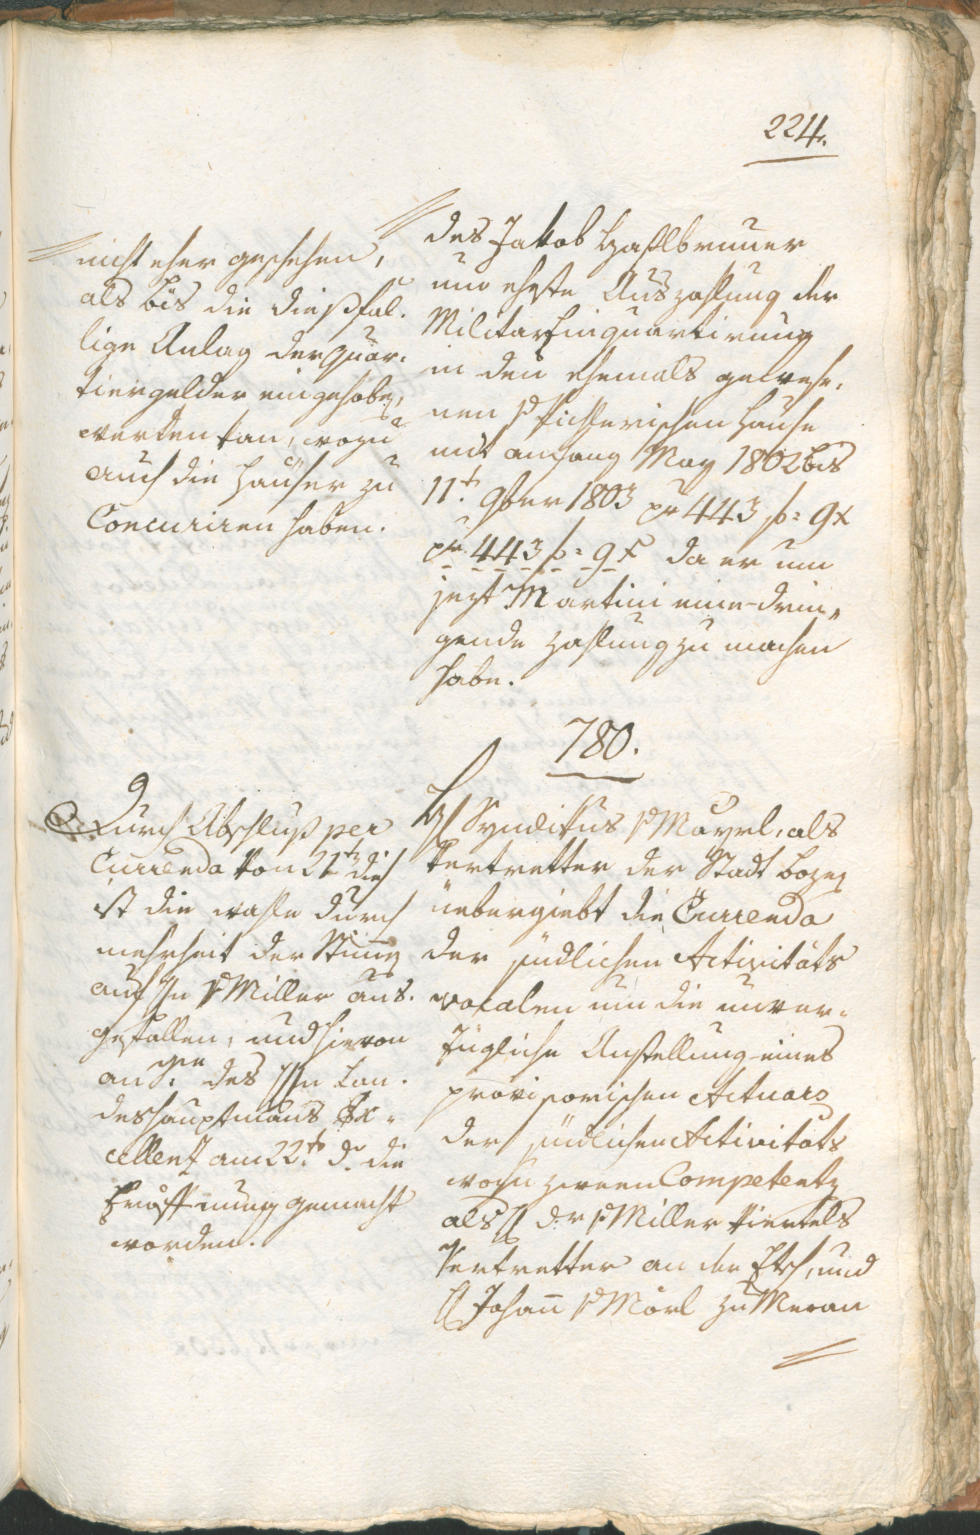 224.
nicht eher geschehen,
als bis die dießfäl.
lige Anlag der Quar.
tiergelder eingehoben,
werden kan, wozu
auch die Häuser zu
Concuriren haben.
des Jakob Haßlbrunner
um eheste Auszahlung der
Militar Einquartirung
in den ehemals gewese,
nen v Pichlerischen Hause
mit anfang May 1802 bis
11t. 9ber 1803 pr 443 f: 9x
pr. 443 f: 9x da er um
jezt Martini eine drin„
gende zahlung zu machen
habe.
780.
Durch Abschluß per
Currenda von 21t dieß
ist die wahle durch
mehrheit der Stimen
auf Hn v Miller aus.
gefallen, und hievon
an Sr. des Hn Lan.
deshauptmans Ex„
cellenz am 22t. d. die
Eröffnung gemacht
worden.
H Syndikus v Mayrl, als
Vertretter der Stadt Bozen
übergiebt die Currenda
der südlichen Activitäts
vocalen um die unver„
zügliche Anstellung eines
provisorischen Actuars
der südlichen Activität,
wozu zween Competenten
als H Dr v Miller Viertels
Vertretter an der Etsch, und
H Johann v Mörl zu Meran